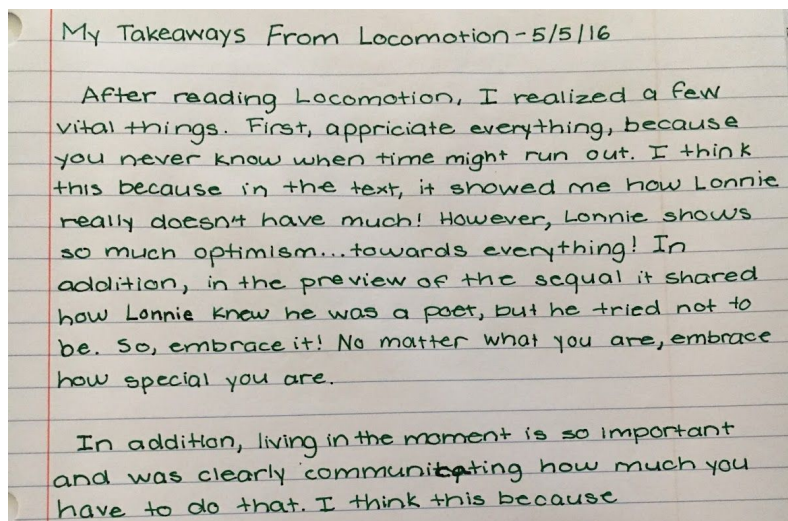 My Takeaways From Locomotion - 5/5/16
After reading Locomotion, I realized a few
vital things. First, appriciate everything, because
you never know when time might run out. I think
this because in the text, it showed me how Lonnie
really doesn't have much! However, Lonnie shows
so much optimism...towards everything! In
addition, in the preview of the sequal it shared
how Lonnie knew he was a poet, but he tried not to
be. So, embrace it! No matter what you are, embrace
how special you are.
In addition, living in the moment is so important
and was clearly communicating how much you
have to do that. I think this because